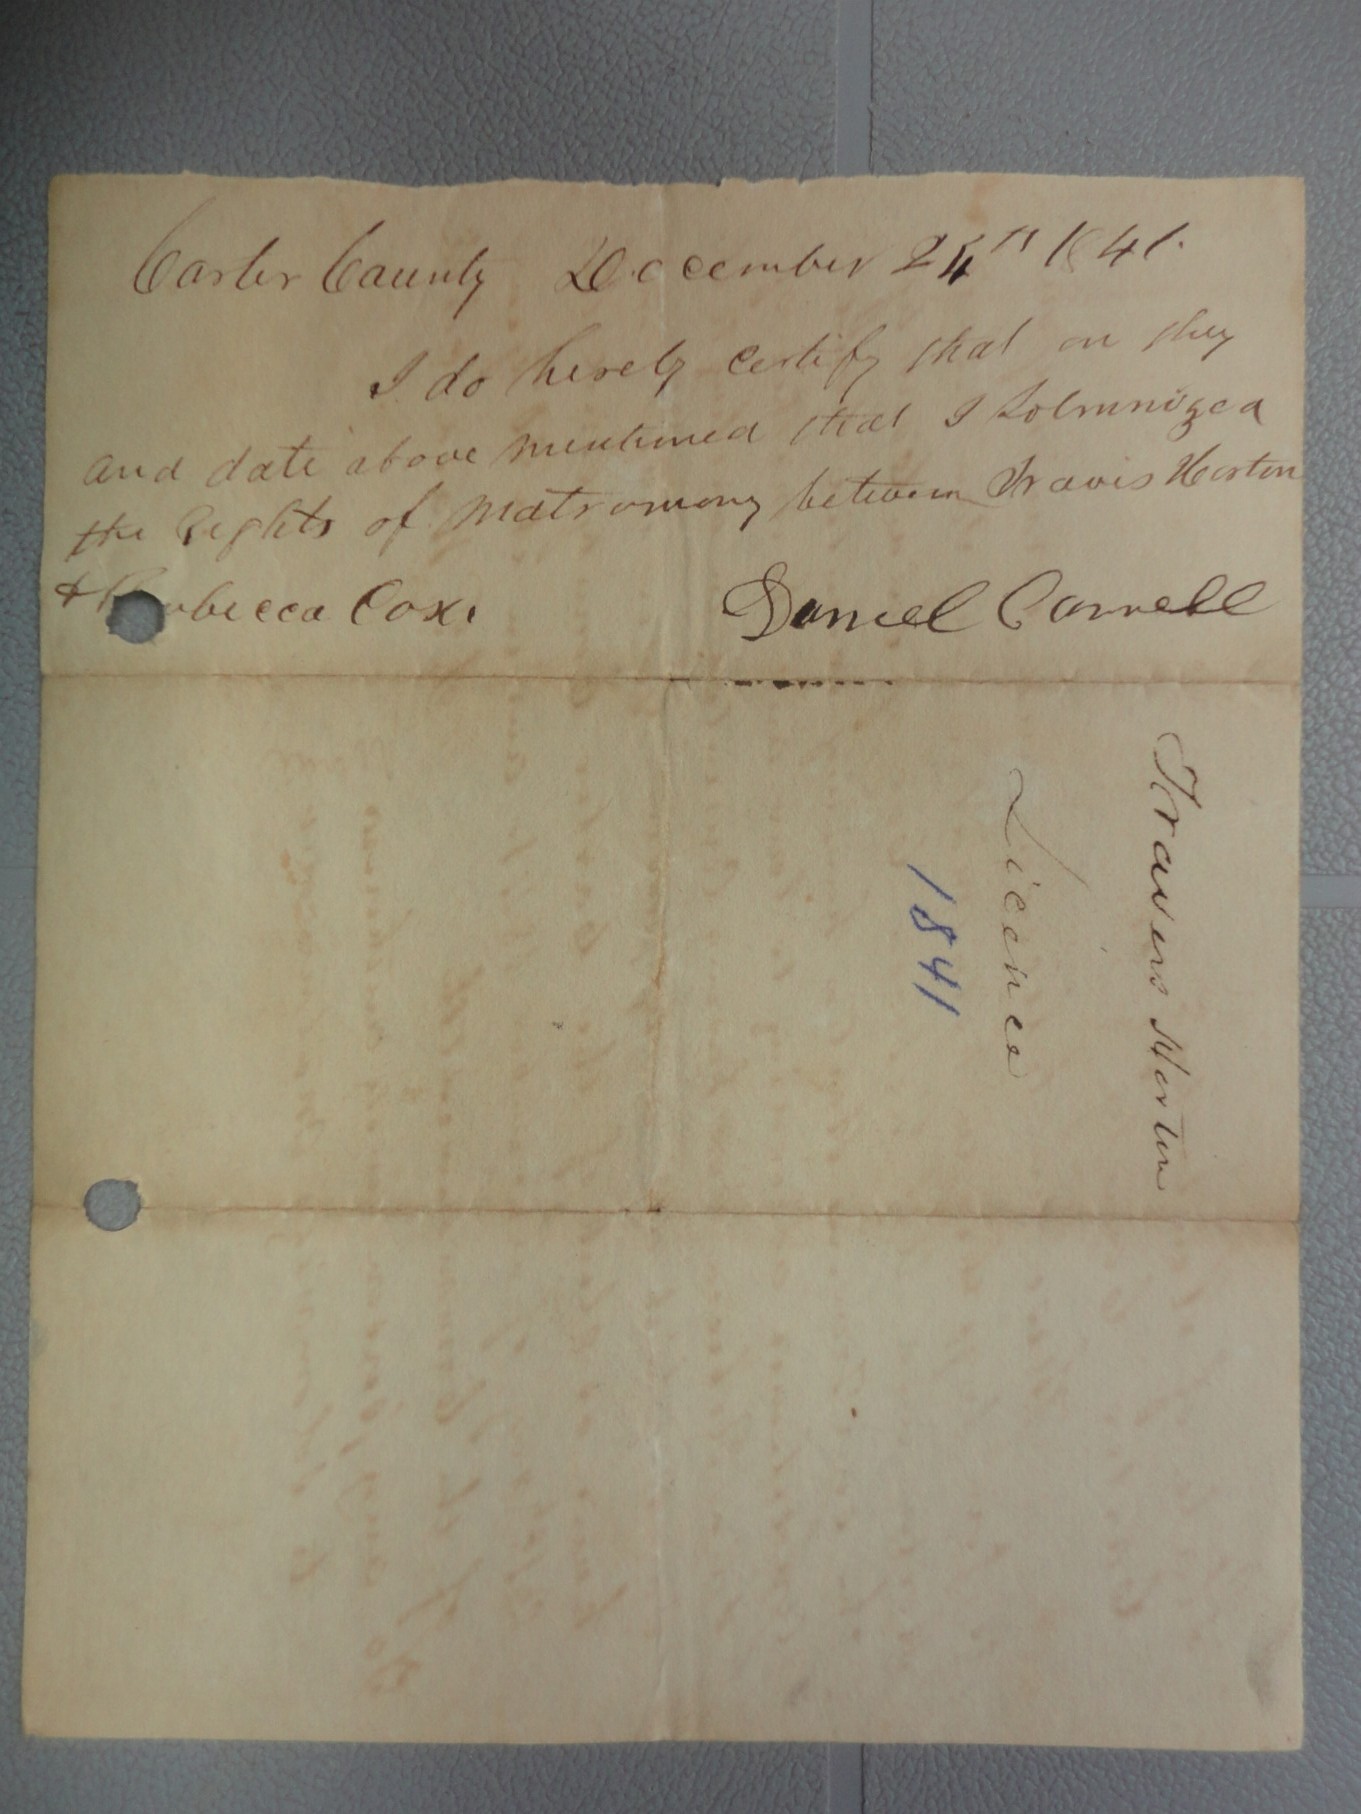 Carter County December 24th 1841.
I do herely certify that on they
and date above mentioned that I Solmnized
the Rights of Matromony between Travis Horton
& Rebecca Cox.
Daniel Carrell
Travis Horton
Licence
1841